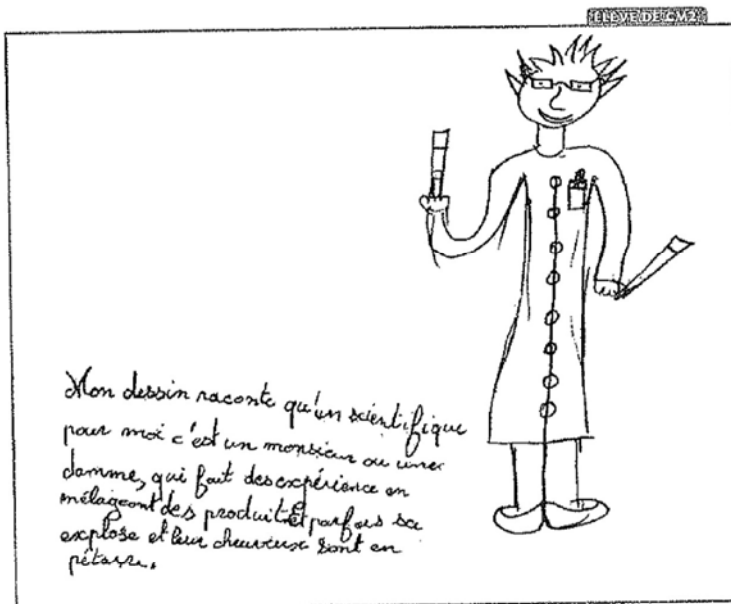 ÉLÈVE DE CM2
Mon dessin raconte qu'un scientifique
pour moi c'est un monsieur ou une
damme, qui fait des expérience en
mélageant des produit et parfois sa
explose et leur cheuveux sont en
pétare.